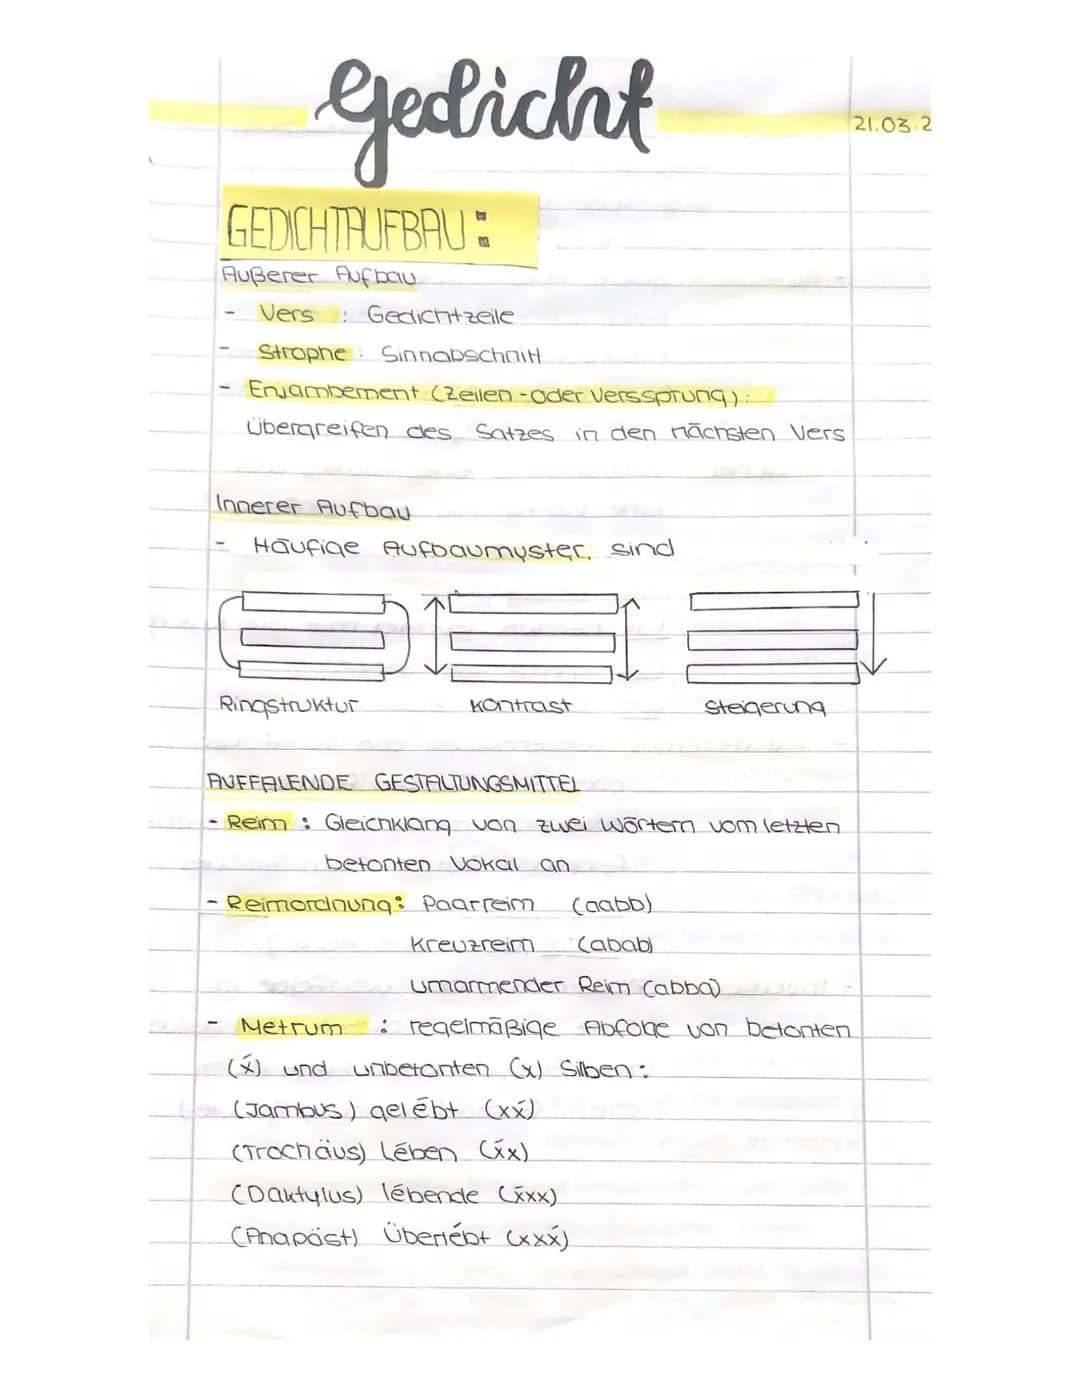 Gedicht
21.03.2
GEDICHTAUFBAU:
Äußerer Aufbau
- Vers : Gedichtzeile
- Strophe : Sinnabschnitt
- Enjambement (Zeilen-oder Verssprung):
Übergreifen des Satzes in den nächsten Vers
Innerer Aufbau
- Häufige Aufbaumuster, sind
Ringstruktur Kontrast Steigerung
AUFFALENDE GESTALTUNGSMITTEL
- Reim : Gleichklang von zwei Wörtern vom letzten
betonten Vokal an
- Reimordnung: Paarreim (aabb)
Kreuzreim (abab)
umarmender Reim (abba)
- Metrum : regelmäßige Abfolge von betonten
(x́) und unbetonten (x) Silben:
(Jambus) gelébt (xx́)
(Trochäus) Lében (x́x)
(Daktylus) lébende (x́xx)
(Anapäst) Überlébt (xxx́)